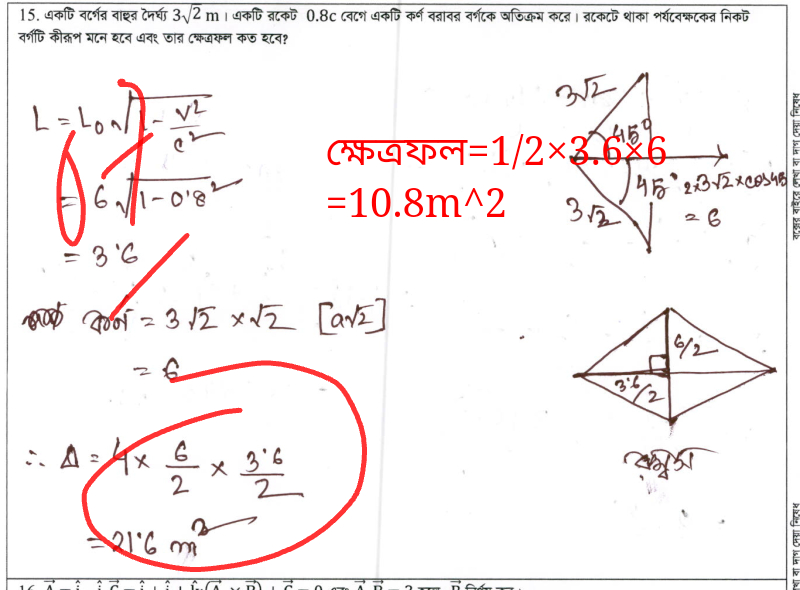 15. একটি বর্গের বাহুর দৈর্ঘ্য 3√2 m । একটি রকেট 0.8c বেগে একটি কর্ণ বরাবর বর্গকে অতিক্রম করে। রকেটে থাকা পর্যবেক্ষকের নিকট
বর্গটি কীরূপ মনে হবে এবং তার ক্ষেত্রফল কত হবে?
L = L₀ √1 - v²/c²
= 6 √1 - 0.8²
= 3.6
কর্ণ = 3√2 × √2 [a√2]
= 6
∴ Δ = 4 × 6/2 × 3.6/2
= 21.6 m²
ক্ষেত্রফল=1/2×3.6×6
=10.8m^2
3√2
45°
45°
3√2
2×3√2×cos45
= 6
6/2
3.6/2
রম্বস